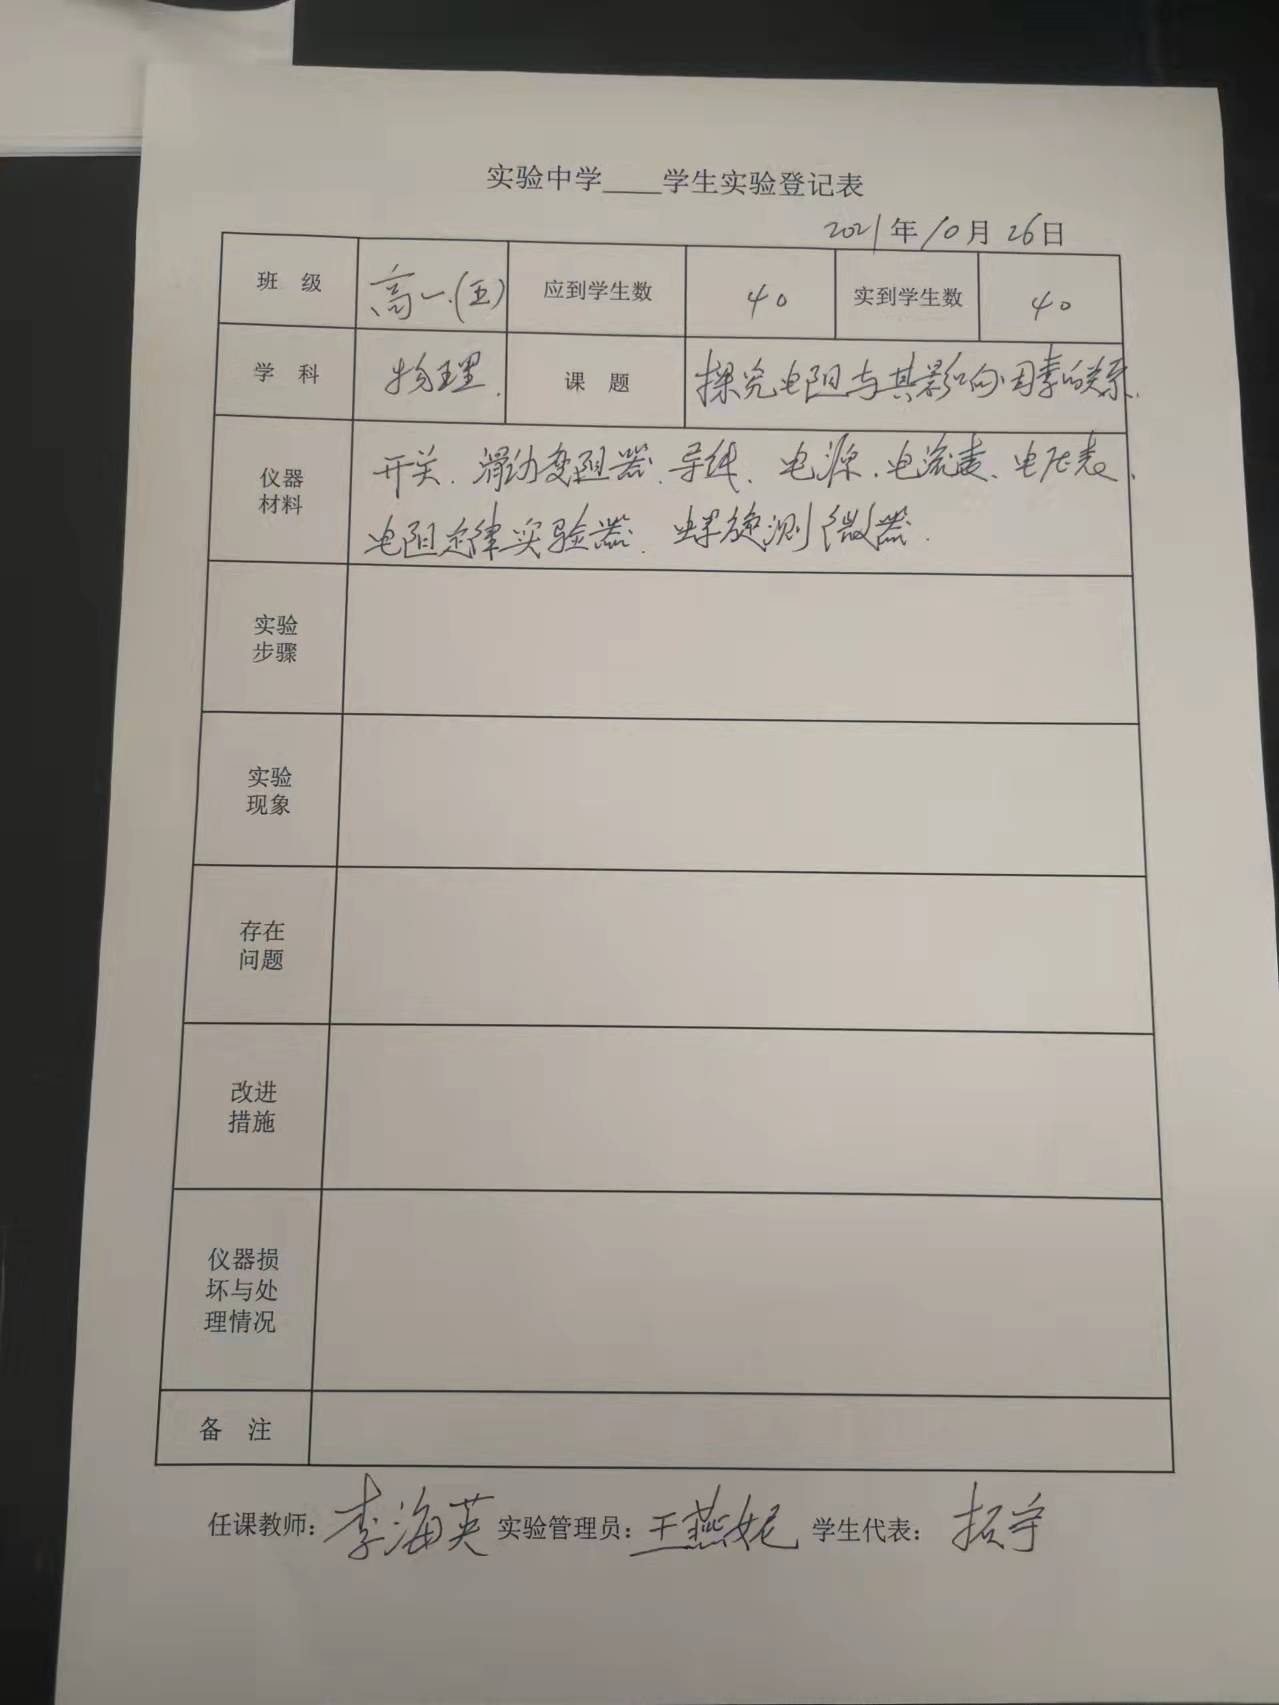 实验中学____学生实验登记表
2021年10月26日
班 级 高一.(五) 应到学生数 40 实到学生数 40
学 科 物理. 课 题 探究电阻与其影响因素的关系.
仪器
材料
开关、滑动变阻器、导线、电源、电流表、电压表、
电阻定律实验器、螺旋测微器.
实验
步骤
实验
现象
存在
问题
改进
措施
仪器损
坏与处
理情况
备 注
任课教师：李海英 实验管理员：王燕妮 学生代表：拓宇